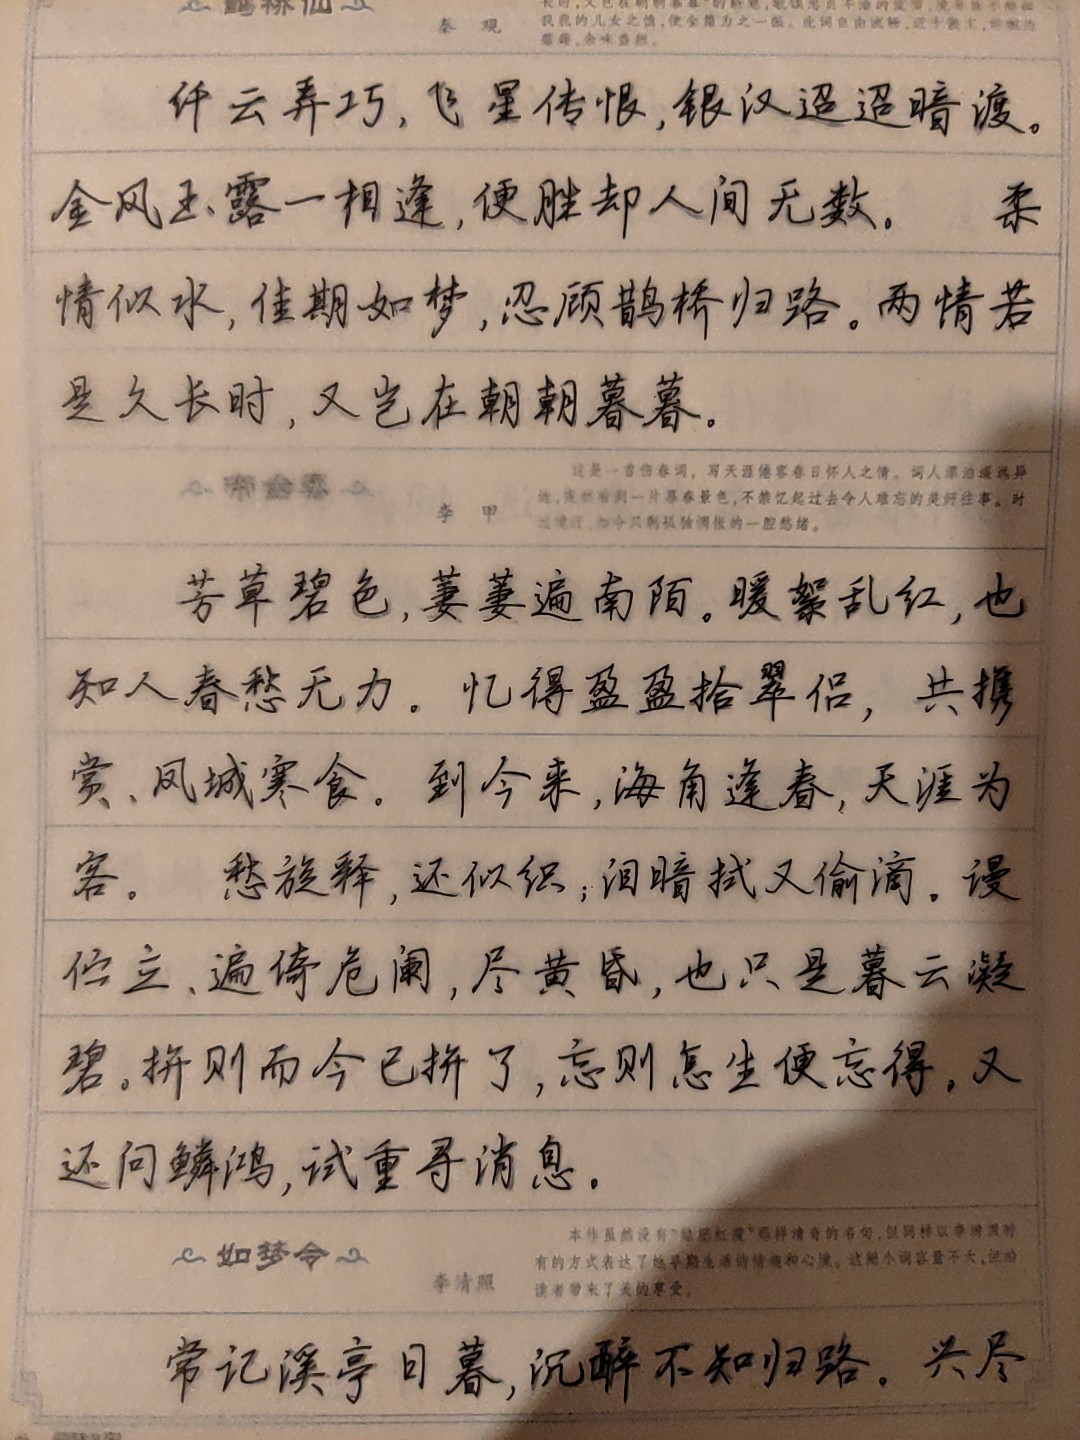 鹊桥仙
秦 观
纤云弄巧,飞星传恨,银汉迢迢暗渡。
金风玉露一相逢,便胜却人间无数。 柔
情似水,佳期如梦,忍顾鹊桥归路。两情若
是久长时,又岂在朝朝暮暮。
帝台春
李 甲
这是一首伤春词,写天涯倦客春日怀人之情。词人漂泊遥远异
地,突然看到一片暮春景色,不禁忆起过去令人难忘的美好往事。时
过境迁,如今只剩孤独惆怅的一腔愁绪。
芳草碧色,萋萋遍南陌。暖絮乱红,也
知人春愁无力。忆得盈盈拾翠侣,共携
赏、凤城寒食。到今来,海角逢春,天涯为
客。 愁旋释,还似织;泪暗拭又偷滴。谩
伫立、遍倚危阑,尽黄昏,也只是暮云凝
碧。拚则而今已拚了,忘则怎生便忘得。又
还问鳞鸿,试重寻消息。
如梦令
李清照
本作虽然没有“绿肥红瘦”那样清奇的名句,但同样以李清照特
有的方式表达了她早期生活的情趣和心境。这阕小词容量不大,但给
读者带来了美的享受。
常记溪亭日暮,沉醉不知归路。兴尽